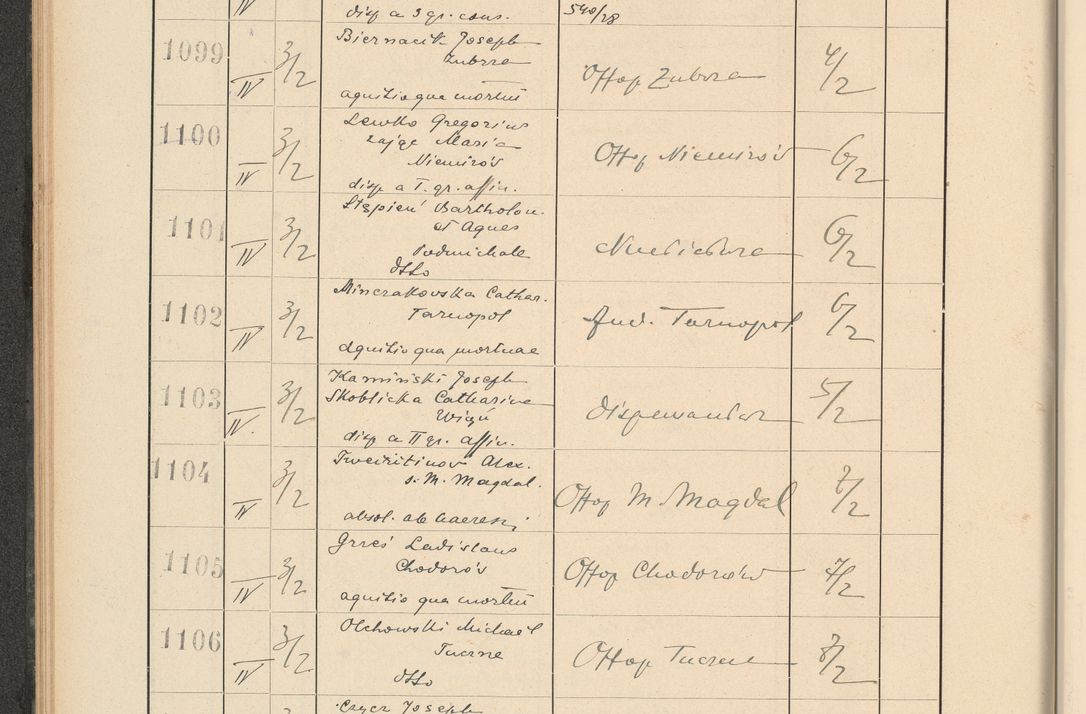 IV disp a 3 gr. cons. 540/28
1099 IV 3/2 Biernacik Joseph
Zubrza
agnitio qua mortui
Offop Zubrza 4/2
1100 IV 3/2 Lewko Gregorius
Zając Maria
Niemirów
disp a I. gr. affin.
Offop Niemirów 6/2
1101 IV 3/2 Stępień Bartholom.
et Agnes
Podmichale
Otto
6/2
1102 IV 3/2 Minczakowska Cathar.
Tarnopol
agnitio qua mortuae
Jud. Tarnopol 6/2
1103 IV. 3/2 Kamiński Joseph
Skoblicka Catharina
disp a II gr. affin.
Dispensantur 5/2
1104 IV 3/2 Alex.
s. M. Magdal.
absol. ab haeresi
Offop M. Magdal 7/2
1105 IV 3/2 Grześ Ladislaus
Chodorów
agnitio qua mortui
Offop Chodorów 4/2
1106 IV 3/2 Olchowski Michaël
Tuczne
Otto
Offop Tuczne 8/2
Czycz Joseph